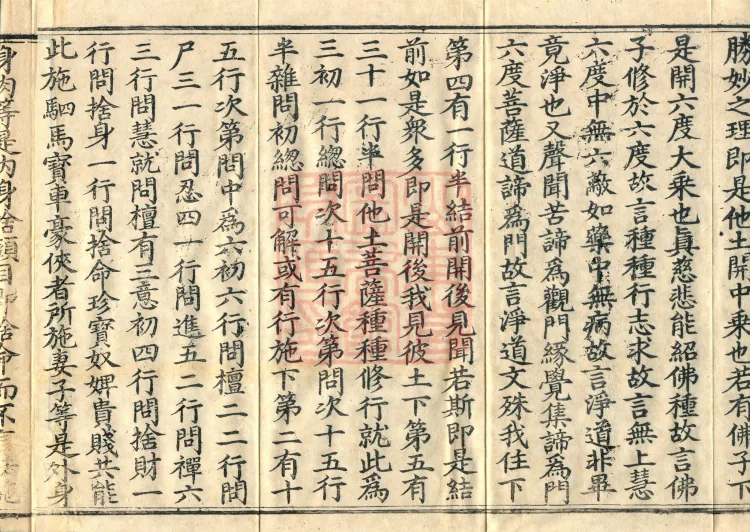 勝妙之理即是他土開中乘也若有佛子下
是開六度大乘也真慈悲能紹佛種故言佛
子修於六度故言種種行志求故言無上慧
六度中無六蔽如藥中無病故言淨道非畢
竟淨也又聲聞苦諦為觀門緣覺集諦為門
六度菩薩道諦為門故言淨道文殊我住下
第四有一行半結前開後見聞若斯即是結
前如是衆多即是開後我見彼土下第五有
三十一行半問他土菩薩種種修行就此為
三初一行總問次十五行次第問次十五行
半雜問初總問可解或有行施下第二有十
五行次第問中為六初六行問檀二二行問
尸三一行問忍四一行問進五二行問禪六
三行問慧就問檀有三意初四行問捨財一
行問捨身一行問捨命珍寶奴婢貴賤共能
此施駟馬寶車豪俠者所施妻子等是外身
身肉等是内身捨頭目即捨命而不